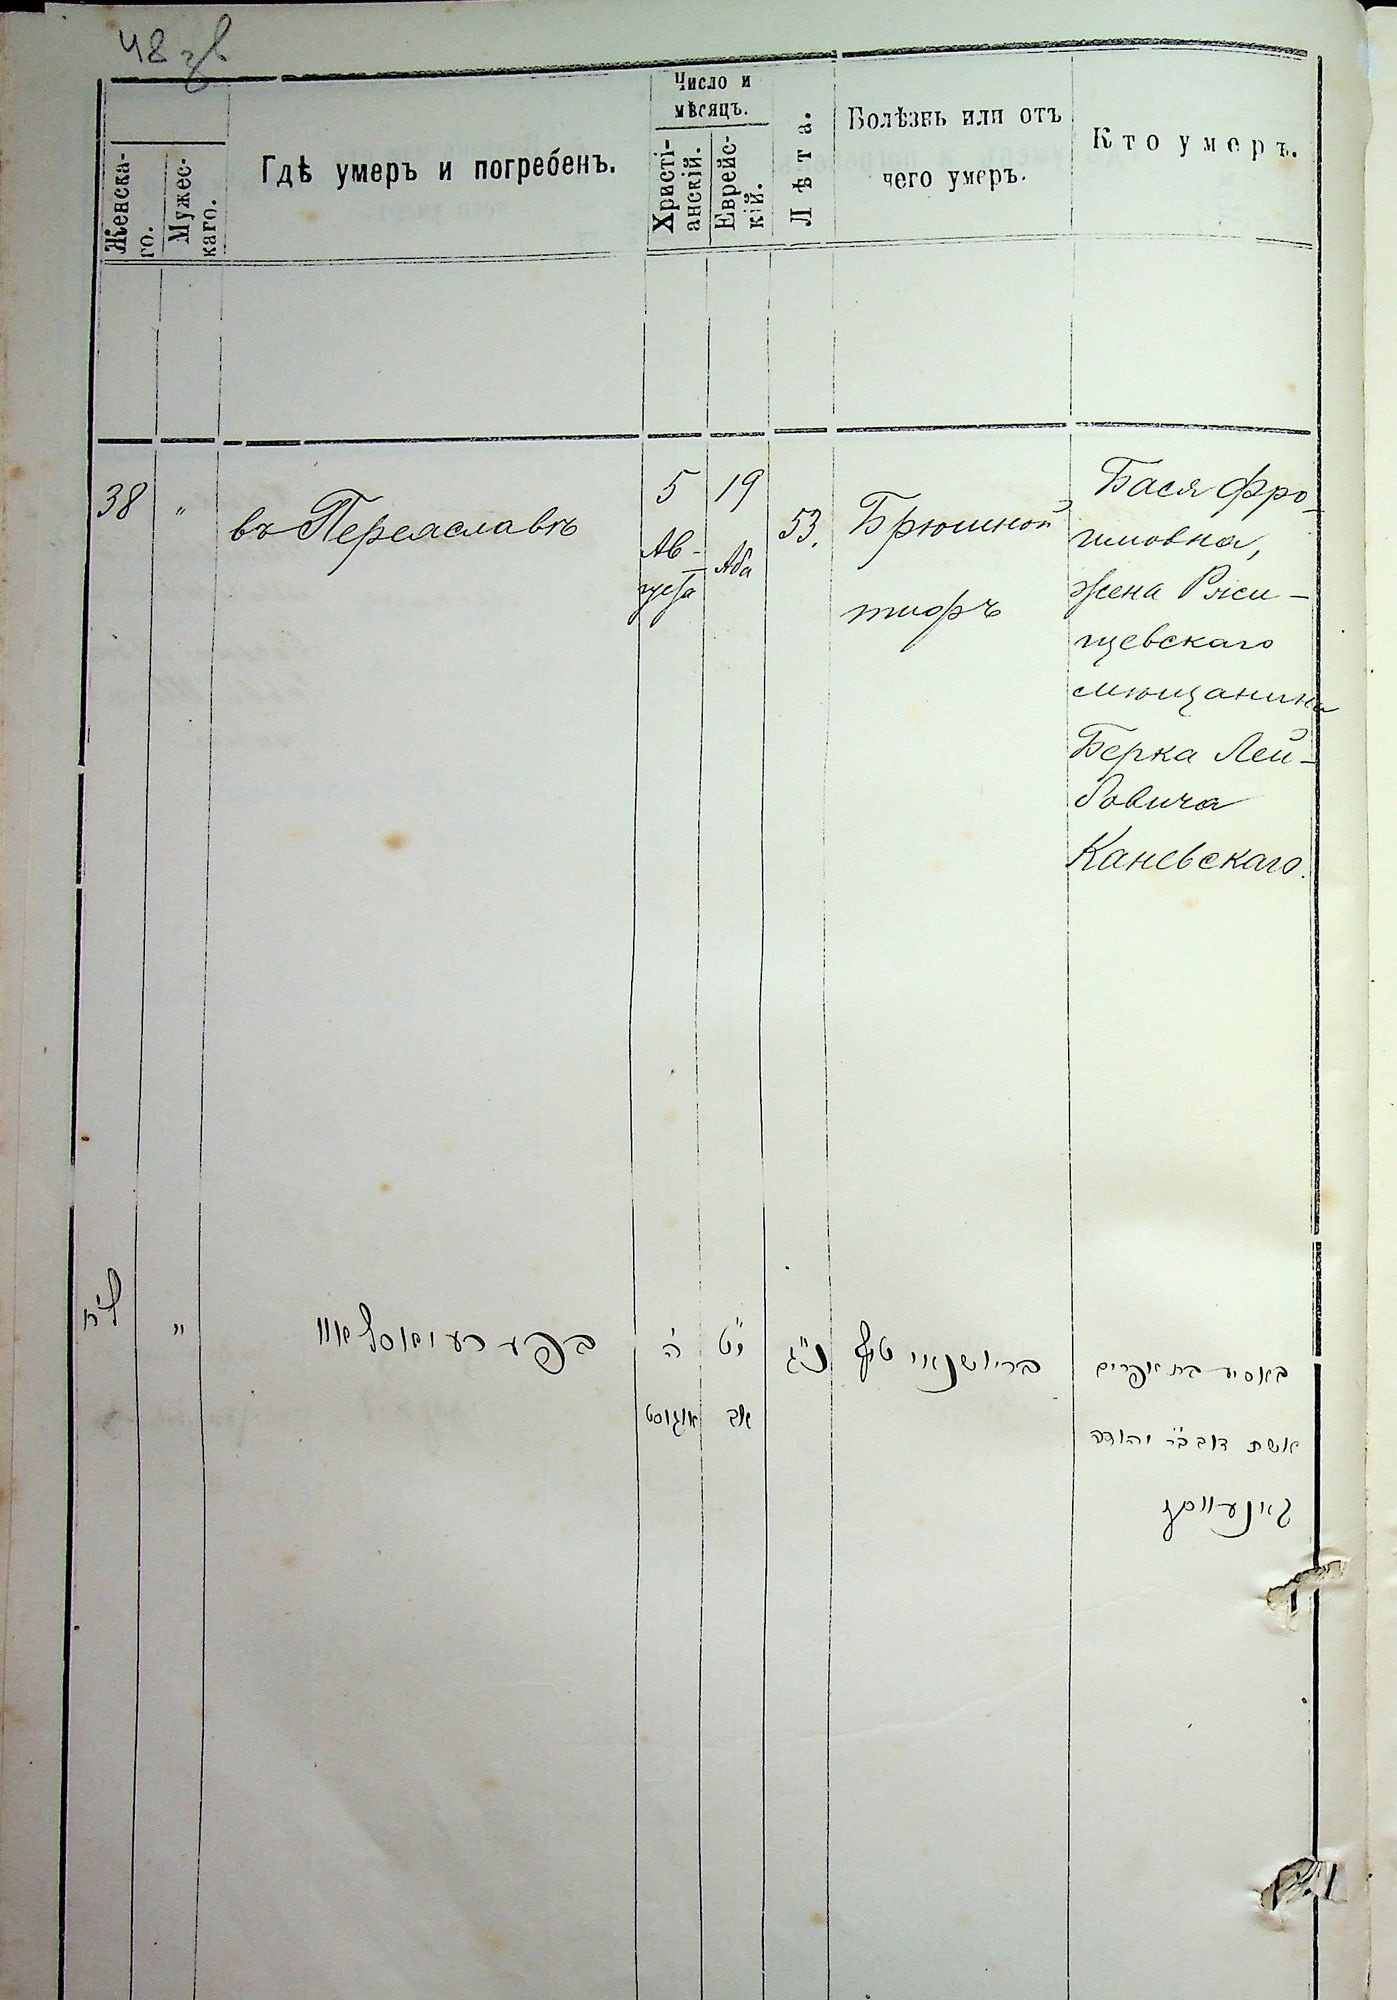 48 зв
Женска-
го.
Мужес-
каго.
Гдѣ умеръ и погребенъ.
Число и
мѣсяцъ.
Христі-
анскій.
Еврейс-
кій.
Лѣта.
Болѣзнь или отъ
чего умеръ.
Кто умеръ.
38
"
въ Переяславѣ
5
Ав-
густа
19
Аба
53.
Брюшной
тифъ
Бася Фро-
имовна,
жена Ржи-
щевскаго
мѣщанина
Берка Лей-
бовича
Каневскаго.
ל״ח
"
בפערעיאסלאוו
ה׳
אוגוסט
י״ט
אב
נ״ג
בריושנאי טיף
באסיע בת אפרים
אשת דוב ב״ר יהודה
קאנעווסקי